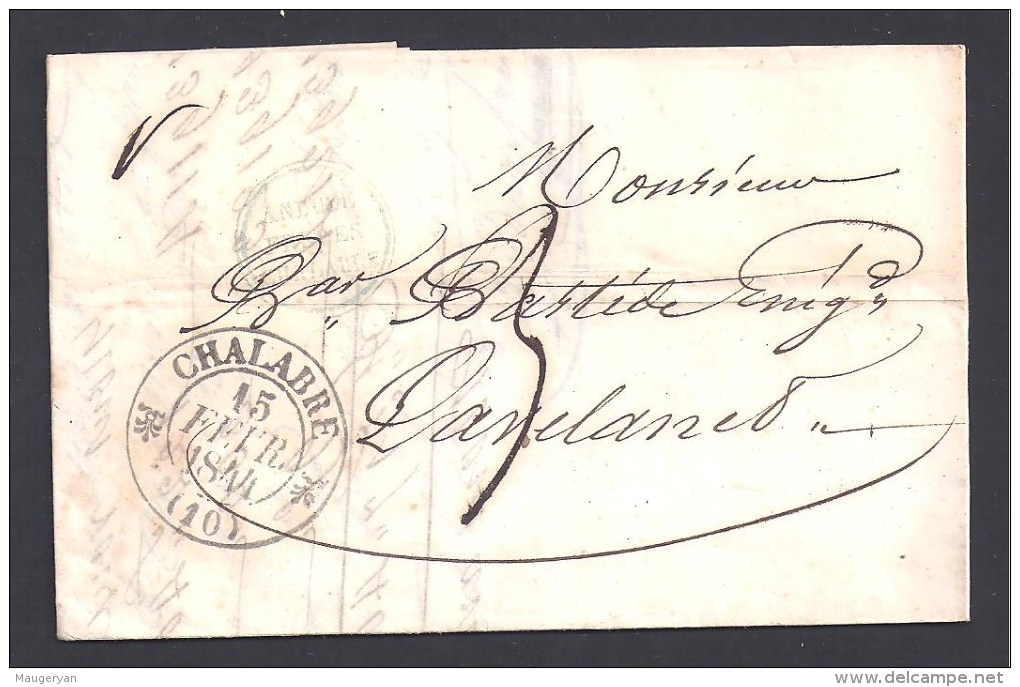 Monsieur
Bar Bastide
Lavelanet
CHALABRE
15
FEVR.
1844
(10)
Maugeryan
www.delcampe.net